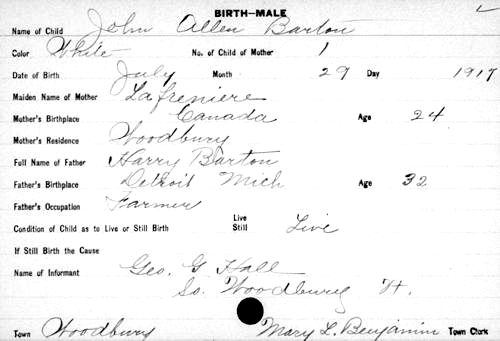 BIRTH—MALE
Name of Child John Allen Barton
Color White No. of Child of Mother 1
Date of Birth July Month 29 Day 1917
Maiden Name of Mother Lafreniere
Mother's Birthplace Canada Age 24
Mother's Residence Woodbury
Full Name of Father Harry Barton
Father's Birthplace Detroit Mich Age 32
Father's Occupation Farmer
Condition of Child as to Live or Still Birth Live Still Live
If Still Birth the Cause
Name of Informant Geo. G Hall
So. Woodbury Vt.
Town Woodbury Mary L. Benjamin Town Clerk